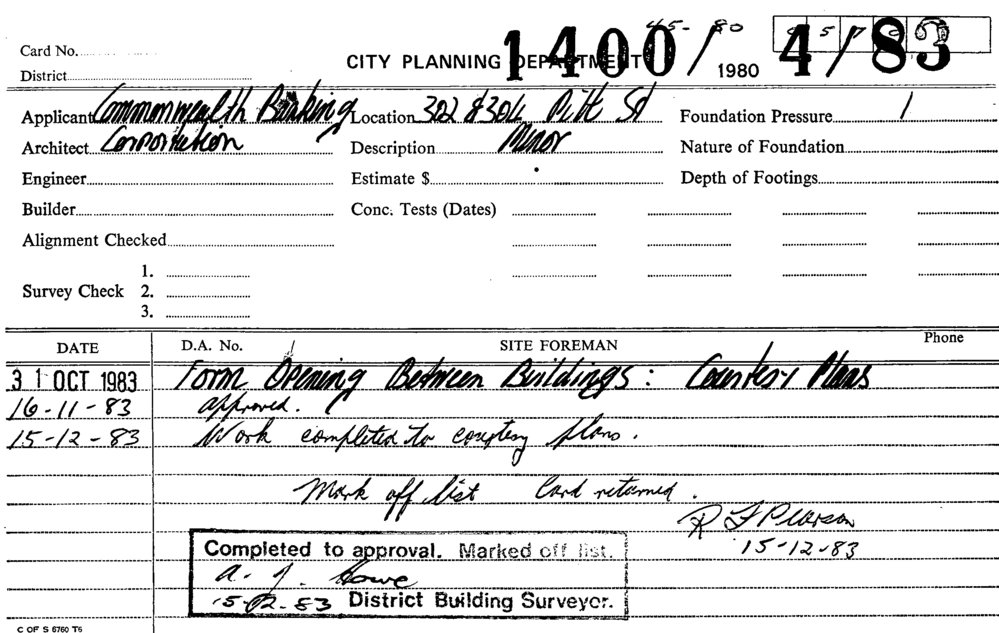 45-80
Card No.
CITY PLANNING DEPARTMENT 1400/ 1980 4/83
District
Applicant Commonwealth Banking Location 302 & 304 Pitt St Foundation Pressure
Architect Corporation Description Minor Nature of Foundation
Engineer Estimate $ Depth of Footings
Builder Conc. Tests (Dates)
Alignment Checked
1.
Survey Check 2.
3.
DATE D.A. No. SITE FOREMAN Phone
31 OCT 1983 Form Opening Between Buildings: Courtesy Plans
16-11-83 approved.
15-12-83 Work completed to courtesy plans.
Mark off list Card returned.
R F Pearson
15-12-83
Completed to approval. Marked off list.
A. J. Howe
15-12-83 District Building Surveyor.
C OF S 6760 T6